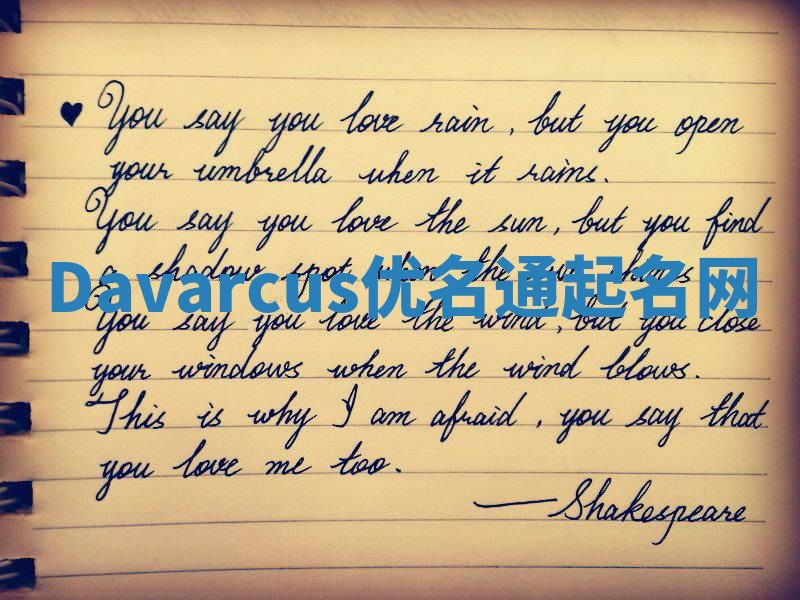 ♥ You say you love rain, but you open
your umbrella when it rains.
You say you love the sun, but you find
a shadow spot when the sun shines
Davarcus优名通起名网
You say you love the wind, but you close
your windows when the wind blows.
This is why I am afraid, you say that
you love me too.
—Shakespeare